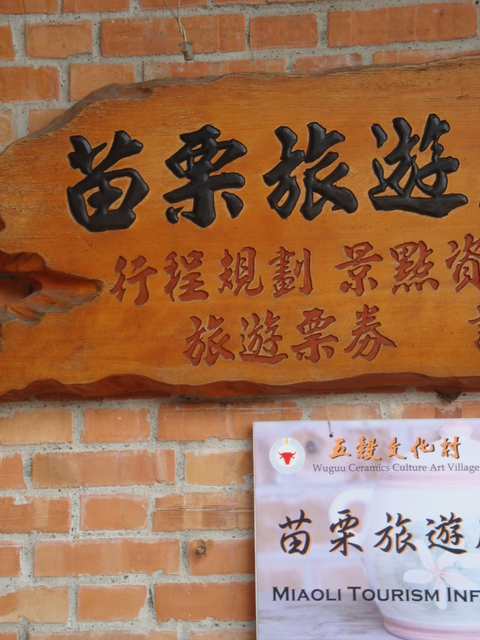 苗栗旅遊
行程規劃 景點資
旅遊票券
五穀文化村
Wuguu Ceramics Culture Art Village
苗栗旅遊
MIAOLI TOURISM INF